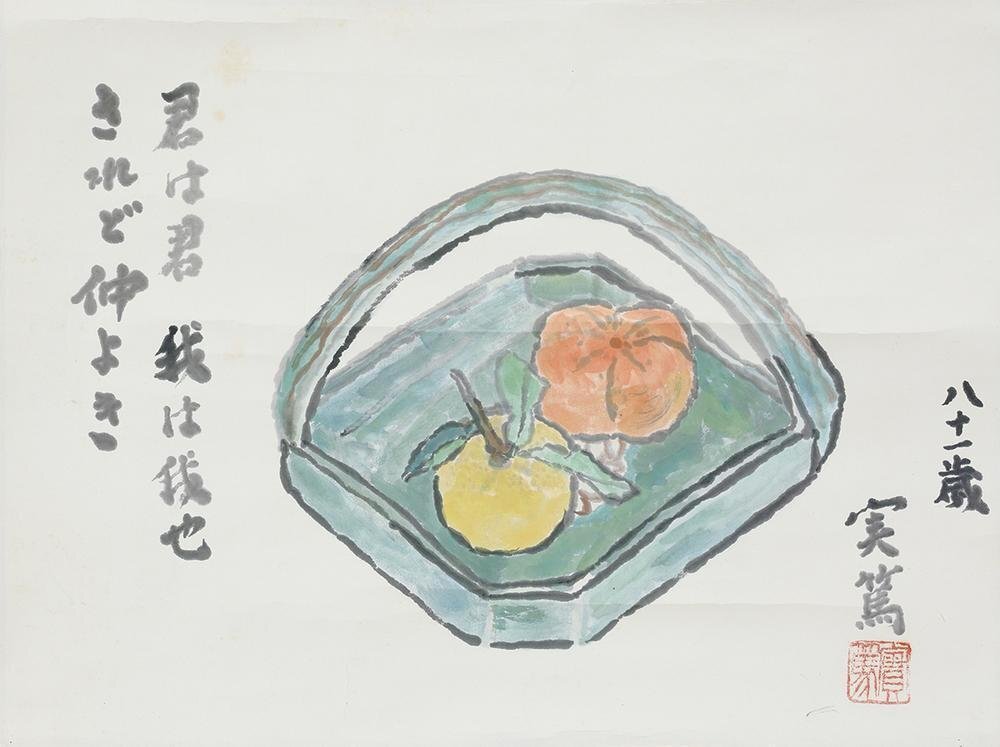 八十一歳
実篤
實篤
君は君 我は我也
されど仲よき